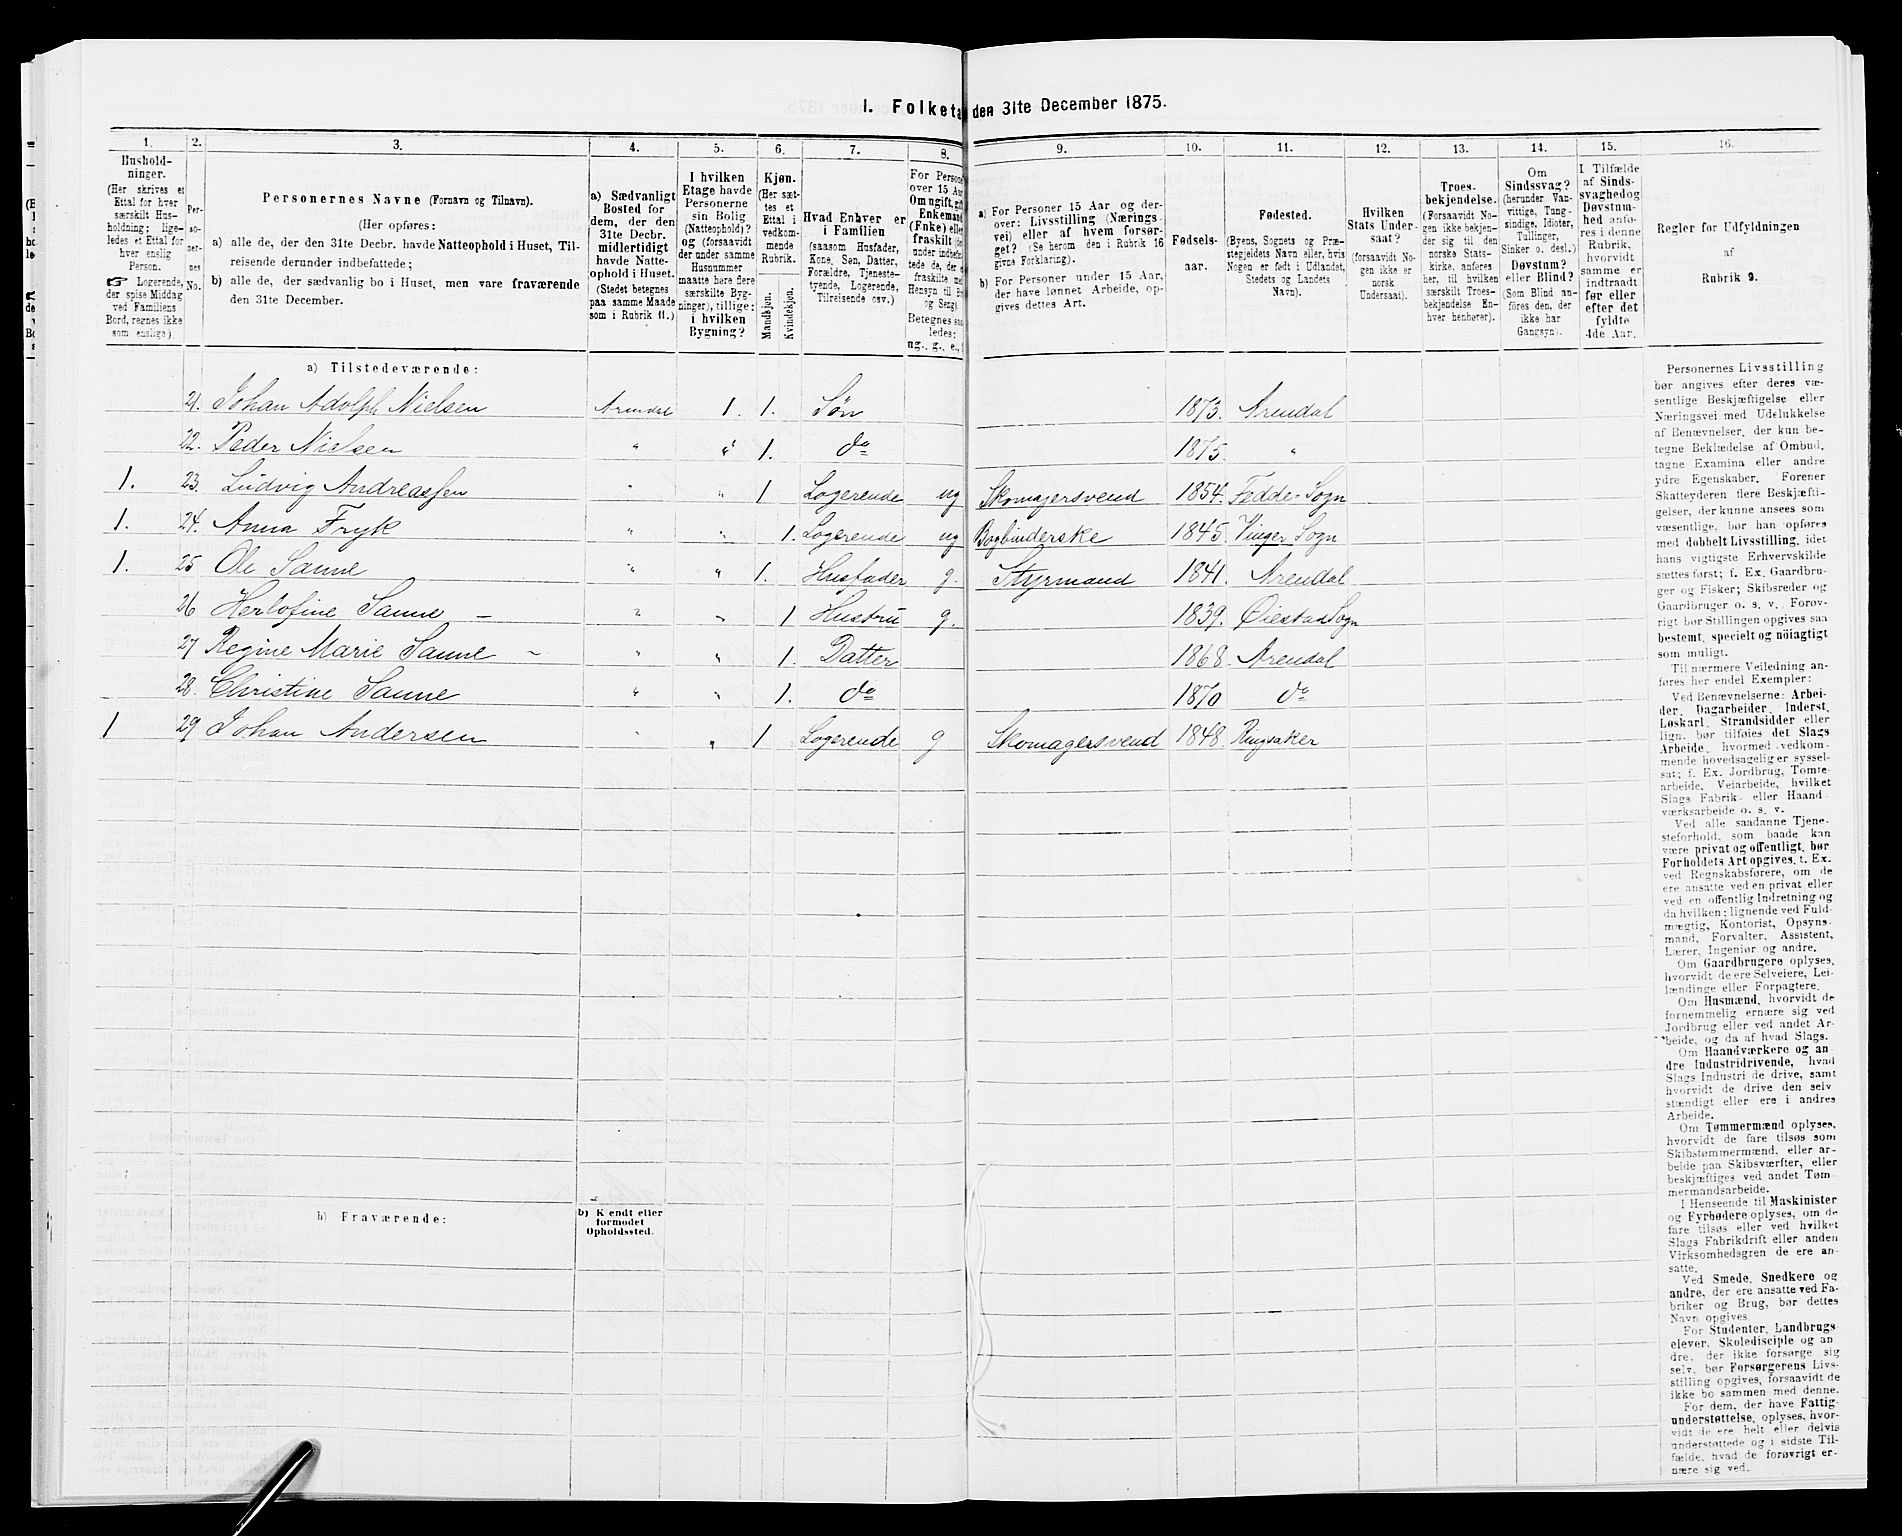 I. Folketæ den 31te December 1875.
1. 2. 3. 4. 5. 6. 7. 8. 9. 10. 11. 12. 13. 14. 15. 16.
Hushold-
ninger.
(Her skrives et
Ettal for hver
særskilt Hus-
holdning; lige-
ledes et Ettal for
hver enslig
Person.
☞ Logerende,
der spise Middag
ved Familiens
Bord, regnes ikke
som enslige).
Per-
so-
ner-
nes
No.
Personernes Navne (Fornavn og Tilnavn).
(Her opføres:
a) alle de, der den 31te Decbr. havde Natteophold i Huset, Til-
reisende derunder indbefattede;
b) alle de, der sædvanlig bo i Huset, men vare fraværende
den 31te December.
a) Sædvanligt
Bosted for
dem, der den
31te Decbr.
midlertidigt
havde Natte-
ophold i Huset.
(Stedet betegnes
paa samme Maade
som i Rubrik 11.)
I hvilken
Etage havde
Personerne
sin Bolig
(Natteophold)?
og (forsaavidt
der under samme
Husnummer
maatte høre flere
særskilte Byg-
ninger), tillige:
i hvilken
Bygning?
Kjøn.
(Her sæt-
tes et
Ettal i
vedkom-
mende
Rubrik.
Mandkjøn.
Kvindekjøn.
Hvad Enhver er
i Familien
(saasom Husfader,
Kone, Søn, Datter,
Forældre, Tjeneste-
tyende, Logerende,
Tilreisende osv.)
For Persone
over 15 Aar
Om ugift, gift
Enkemand
(Enke) elle
fraskilt (de
under indbefat-
tede de, der e
fraskilte me
Hensyn til B
og Seng).
Betegnes saa
ledes:
ug., g., e., f
a) For Personer 15 Aar og der-
over: Livsstilling (Nærings-
vei) eller af hvem forsør-
get? (Se herom den i Rubrik 16
givne Forklaring).
b) For Personer under 15 Aar,
der have lønnet Arbeide, op-
gives dettes Art.
Fødsels-
aar.
Fødested.
(Byens, Sognets og Præ-
stegjeldets Navn eller, hvis
Nogen er født i Udlandet,
Stedets og Landets
Navn).
Hvilken
Stats Under-
saat?
(forsaavidt No-
gen ikke er
norsk
Undersaat).
Troes-
bekjendelse.
(Forsaavidt No-
gen ikke bekjen-
der sig til den
norske Stats-
kirke, anføres
her, til hvilken
særskilt Troes-
bekjendelse En-
hver henhører).
Om
Sindssvag?
(herunder Van-
vittige, Tung-
sindige, Idioter,
Tullinger,
Sinker o. desl.)
Døvstum?
eller Blind?
(Som Blind an-
føres den, der
ikke har
Gangsyn).
I Tilfælde
af Sinds-
svaghed og
Døvstum-
hed anfø-
res i denne
Rubrik,
hvorvidt
samme er
indtraadt
før eller
efter det
fyldte
4de Aar.
Regler for Udfyldningen
af
Rubrik 9.
a) Tilstedeværende:
21. Johan Adolph Nielsen Arendal 1. 1. Søn 1873. Arendal
22. Peder Nielsen " " 1. do 1875. "
1. 23. Ludvig Andreassen " " 1 Logerende ug Skomagersvend 1854. Fedde-Sogn
1. 24. Anna Fryk " " 1. Logerende ug Bogbinderske 1845. Vinger Sogn
1. 25 Ole Sanne " " 1. Husfader g. Styrmand 1841. Arendal
26 Herlofine Sanne – " " 1 Hustru g. 1839. Øiestad Sogn
27 Regine Marie Sanne – " " 1. Datter 1868. Arendal
28. Christine Sanne " " 1. do 1870 do
1 29 Johan Andersen " " 1 Logerende g Skomagersvend 1848. Ringsaker
b) Fraværende:
b) Kendt eller
formodet
Opholdssted.
Personernes Livsstilling
bør angives efter deres væ-
sentlige Beskjæftigelse eller
Næringsvei med Udelukkelse
af Benævnelser, der kun be-
tegne Beklædelse af Ombud,
tagne Examina eller andre
ydre Egenskaber. Forener
Skatteyderen flere Beskjæfti-
gelser, der kunne ansees som
væsentlige, bør han opføres
med dobbelt Livsstilling, idet
hans vigtigste Erhvervskilde
sættes først; f. Ex. Gaardbru-
ger og Fisker; Skibsreder og
Gaardbruger o. s. v. Forøv-
rigt bør Stillingen opgives saa
bestemt, specielt og nöiagtigt
som muligt.
Til nærmere Veiledning an-
føres her endel Exempler:
Ved Benævnelserne: Arbei-
der, Dagarbeider, Inderst,
Løskarl, Strandsidder eller
lign. bør tilføies det Slags
Arbeide, hvormed vedkom-
mende hovedsagelig er syssel-
sat; f. Ex. Jordbrug, Tomte-
arbeide, Veiarbeide, hvilket
Slags Fabrik- eller Haand-
værksarbeide o. s. v.
Ved alle saadanne Tjene-
steforhold, som baade kan
være privat og offentligt, bør
Forholdets Art opgives, t. Ex.
ved Regnskabsførere, om de
ere ansatte ved en privat eller
ved en offentlig Indretning og
da hvilken; lignende ved Fuld-
mægtig, Kontorist, Opsyns-
mand, Forvalter, Assistent,
Lærer, Ingeniør og andre.
Om Gaardbrugere oplyses,
hvorvidt de ere Selveiere, Lei-
lændinge eller Forpagtere.
Om Husmænd, hvorvidt de
fornemmelig ernære sig ved
Jordbrug eller ved andet Ar-
beide, og da af hvad Slags.
Om Haandværkere og an
dre Industridrivende, hvad
Slags Industri de drive, samt
hvorvidt de drive den selv
stændigt eller ere i andres
Arbeide.
Om Tømmermænd oplyses,
hvorvidt de fare tilsøs som
Skibstømmermænd, eller ar-
beide paa Skibsværfter, eller
beskjæftiges ved andet Tøm-
mermandsarbeide.
I Henseende til Maskinister
og Fyrbødere oplyses, om de
fare tilsøs eller ved hvilket
Slags Fabrikdrift eller anden
Virksomhedsgren de ere an-
satte.
Ved Smede, Snedkere og
andre, der ere ansatte ved Fa-
briker og Brug, bør dettes
Navn opgives.
For Studenter, Landbrugs-
elever, Skoledisciple og an
dre, der ikke forsørge sig
selv, bør Forsørgerens Livs-
stilling opgives, forsaavidt de
ikke bo sammen med denne.
For dem, der have Fattig-
understøttelse, oplyses, hvor-
vidt de ere helt eller delvis
understøttede og i sidste Til-
fælde, hvad de forøvrigt er-
nære sig ved.